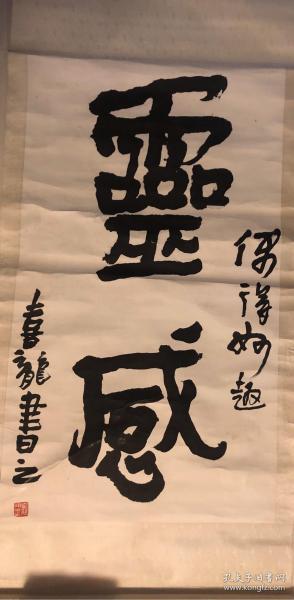 偶得妙趣
靈感
喜龍書之
孔夫子旧书网